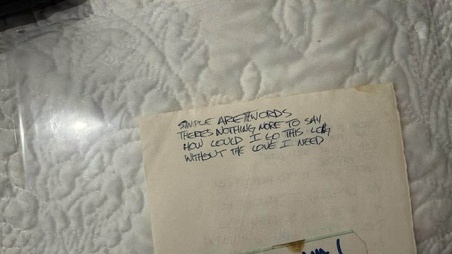 SIMPLE ARE THE WORDS
THERES NOTHING MORE TO SAY
HOW COULD I GO THIS LONG
WITHOUT THE LOVE I NEED